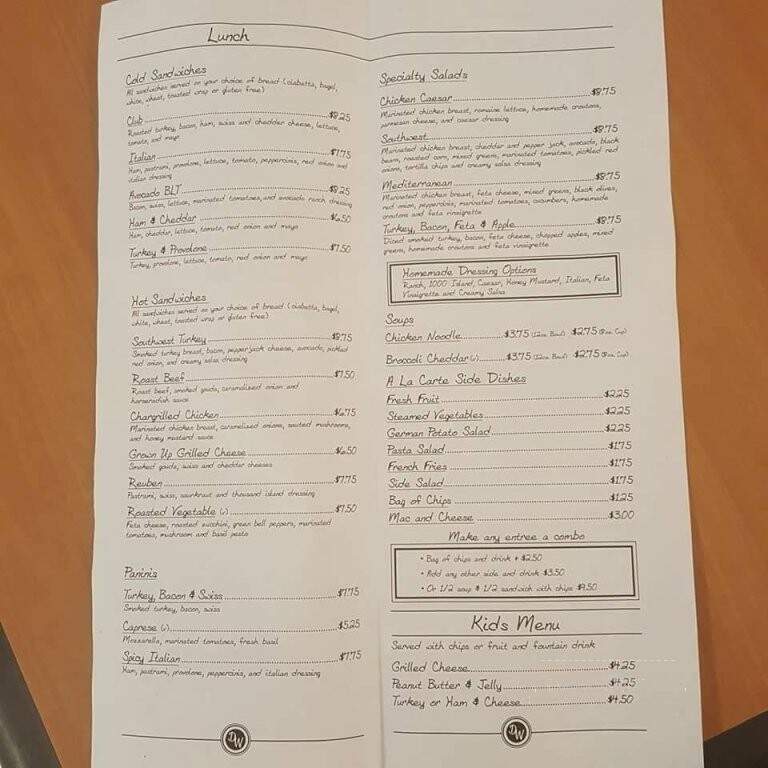 Lunch
Cold Sandwiches
All sandwiches served on your choice of bread (ciabatta, bagel,
white, wheat, toasted wrap or gluten free)
Club $8.25
Roasted turkey, bacon, ham, swiss and cheddar cheese, lettuce,
tomato, and mayo
Italian $7.75
Ham, pastrami, provolone, lettuce, tomato, pepperoncinis, red onion and
italian dressing
Avocado BLT $8.25
Bacon, swiss, lettuce, marinated tomatoes, and avocado ranch dressing
Ham & Cheddar $6.50
Ham, cheddar, lettuce, tomato, red onion and mayo
Turkey & Provolone $7.50
Turkey, provolone, lettuce, tomato, red onion and mayo
Hot Sandwiches
All sandwiches served on your choice of bread (ciabatta, bagel,
white, wheat, toasted wrap or gluten free)
Southwest Turkey $8.75
Smoked turkey breast, bacon, pepperjack cheese, avocado, pickled
red onion, and creamy salsa dressing
Roast Beef $7.50
Roast beef, smoked gouda, caramelized onion and
horseradish sauce
Chargrilled Chicken $6.75
Marinated chicken breast, caramelized onions, sauted mushrooms,
and honey mustard sauce
Grown Up Grilled Cheese $6.50
Smoked gouda, swiss and cheddar cheeses
Reuben $7.75
Pastrami, swiss, saurkraut and thousand island dressing
Roasted Vegetable (v) $7.50
Feta cheese, roasted zucchini, green bell peppers, marinated
tomatoes, mushroom and basil pesto
Paninis
Turkey, Bacon & Swiss $7.75
Smoked turkey, bacon, swiss
Caprese (v) $5.25
Mozzarella, marinated tomatoes, fresh basil
Spicy Italian $7.75
Ham, pastrami, provolone, pepperoncinis, and italian dressing
DW
Specialty Salads
Chicken Caesar $8.75
Marinated chicken breast, romaine lettuce, homemade croutons,
parmesan cheese, and caesar dressing
Southwest $8.75
Marinated chicken breast, cheddar and pepper jack, avocado, black
bean, roasted corn, mixed greens, marinated tomatoes, pickled red
onions, tortilla chips and creamy salsa dressing
Mediterranean $8.75
Marinated chicken breast, feta cheese, mixed greens, black olives,
red onion, pepperoncinis, marinated tomatoes, cucumbers, homemade
croutons and feta vinaigrette
Turkey, Bacon, Feta & Apple $8.75
Diced smoked turkey, bacon, feta cheese, chopped apples, mixed
greens, homemade croutons and feta vinaigrette
Homemade Dressing Options
Ranch, 1000 Island, Caesar, Honey Mustard, Italian, Feta
Vinaigrette and Creamy Salsa
Soups
Chicken Noodle $3.75 (12oz. Bowl) $2.75 (8oz. Cup)
Broccoli Cheddar (v) $3.75 (12oz. Bowl) $2.75 (8oz. Cup)
A La Carte Side Dishes
Fresh Fruit $2.25
Steamed Vegetables $2.25
German Potato Salad $2.25
Pasta Salad $1.75
French Fries $1.75
Side Salad $1.75
Bag of Chips $1.25
Mac and Cheese $3.00
Make any entree a combo
• Bag of chips and drink + $2.50
• Add any other side and drink $3.50
• Or 1/2 soup & 1/2 sandwich with chips $9.50
Kids Menu
Served with chips or fruit and fountain drink
Grilled Cheese $4.25
Peanut Butter & Jelly $4.25
Turkey or Ham & Cheese $4.50
DW